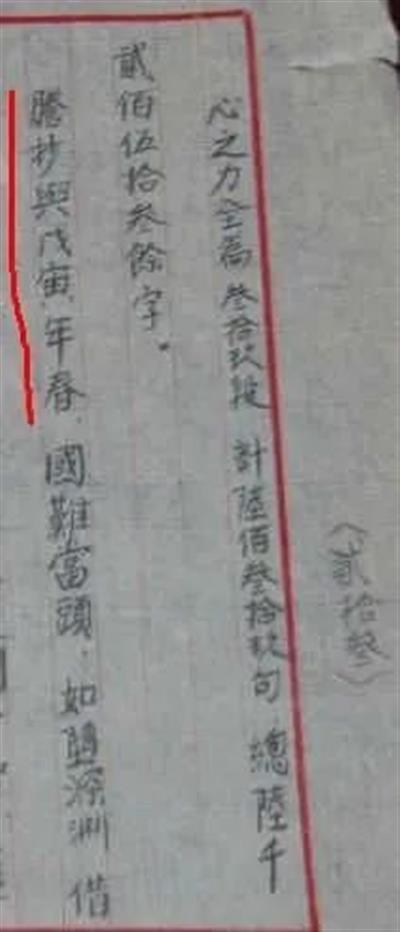 （貳拾叄）
心之力全篇叄拾玖段 計陸佰叄拾玖句 總陸千
貳佰伍拾叄餘字。
謄抄與戊寅年春，國難當頭，如墮深淵 借